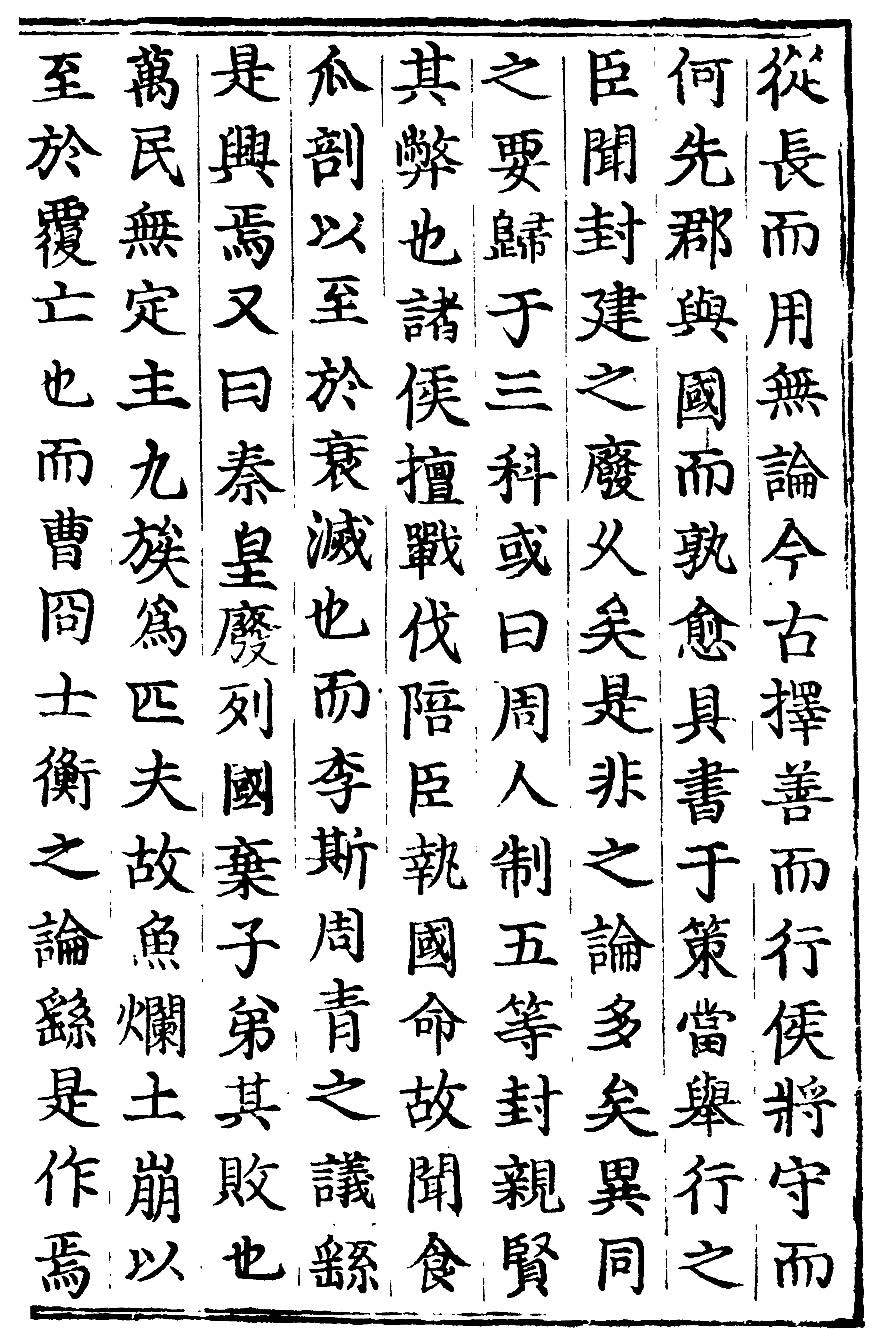 從長而用無論今古擇善而行侯將守而
何先郡與國而孰愈具書于策當舉行之
臣聞封建之廢乆矣是非之論多矣異同
之要歸于三科或曰周人制五等封親賢
其弊也諸侯擅戰伐陪臣執國命故聞食
瓜剖以至於衰滅也而李斯周青之議繇
是興焉又曰秦皇廢列國棄子弟其敗也
萬民無定主九族爲匹夫故魚爛土崩以
至於覆亡也而曹冏士衡之論繇是作焉